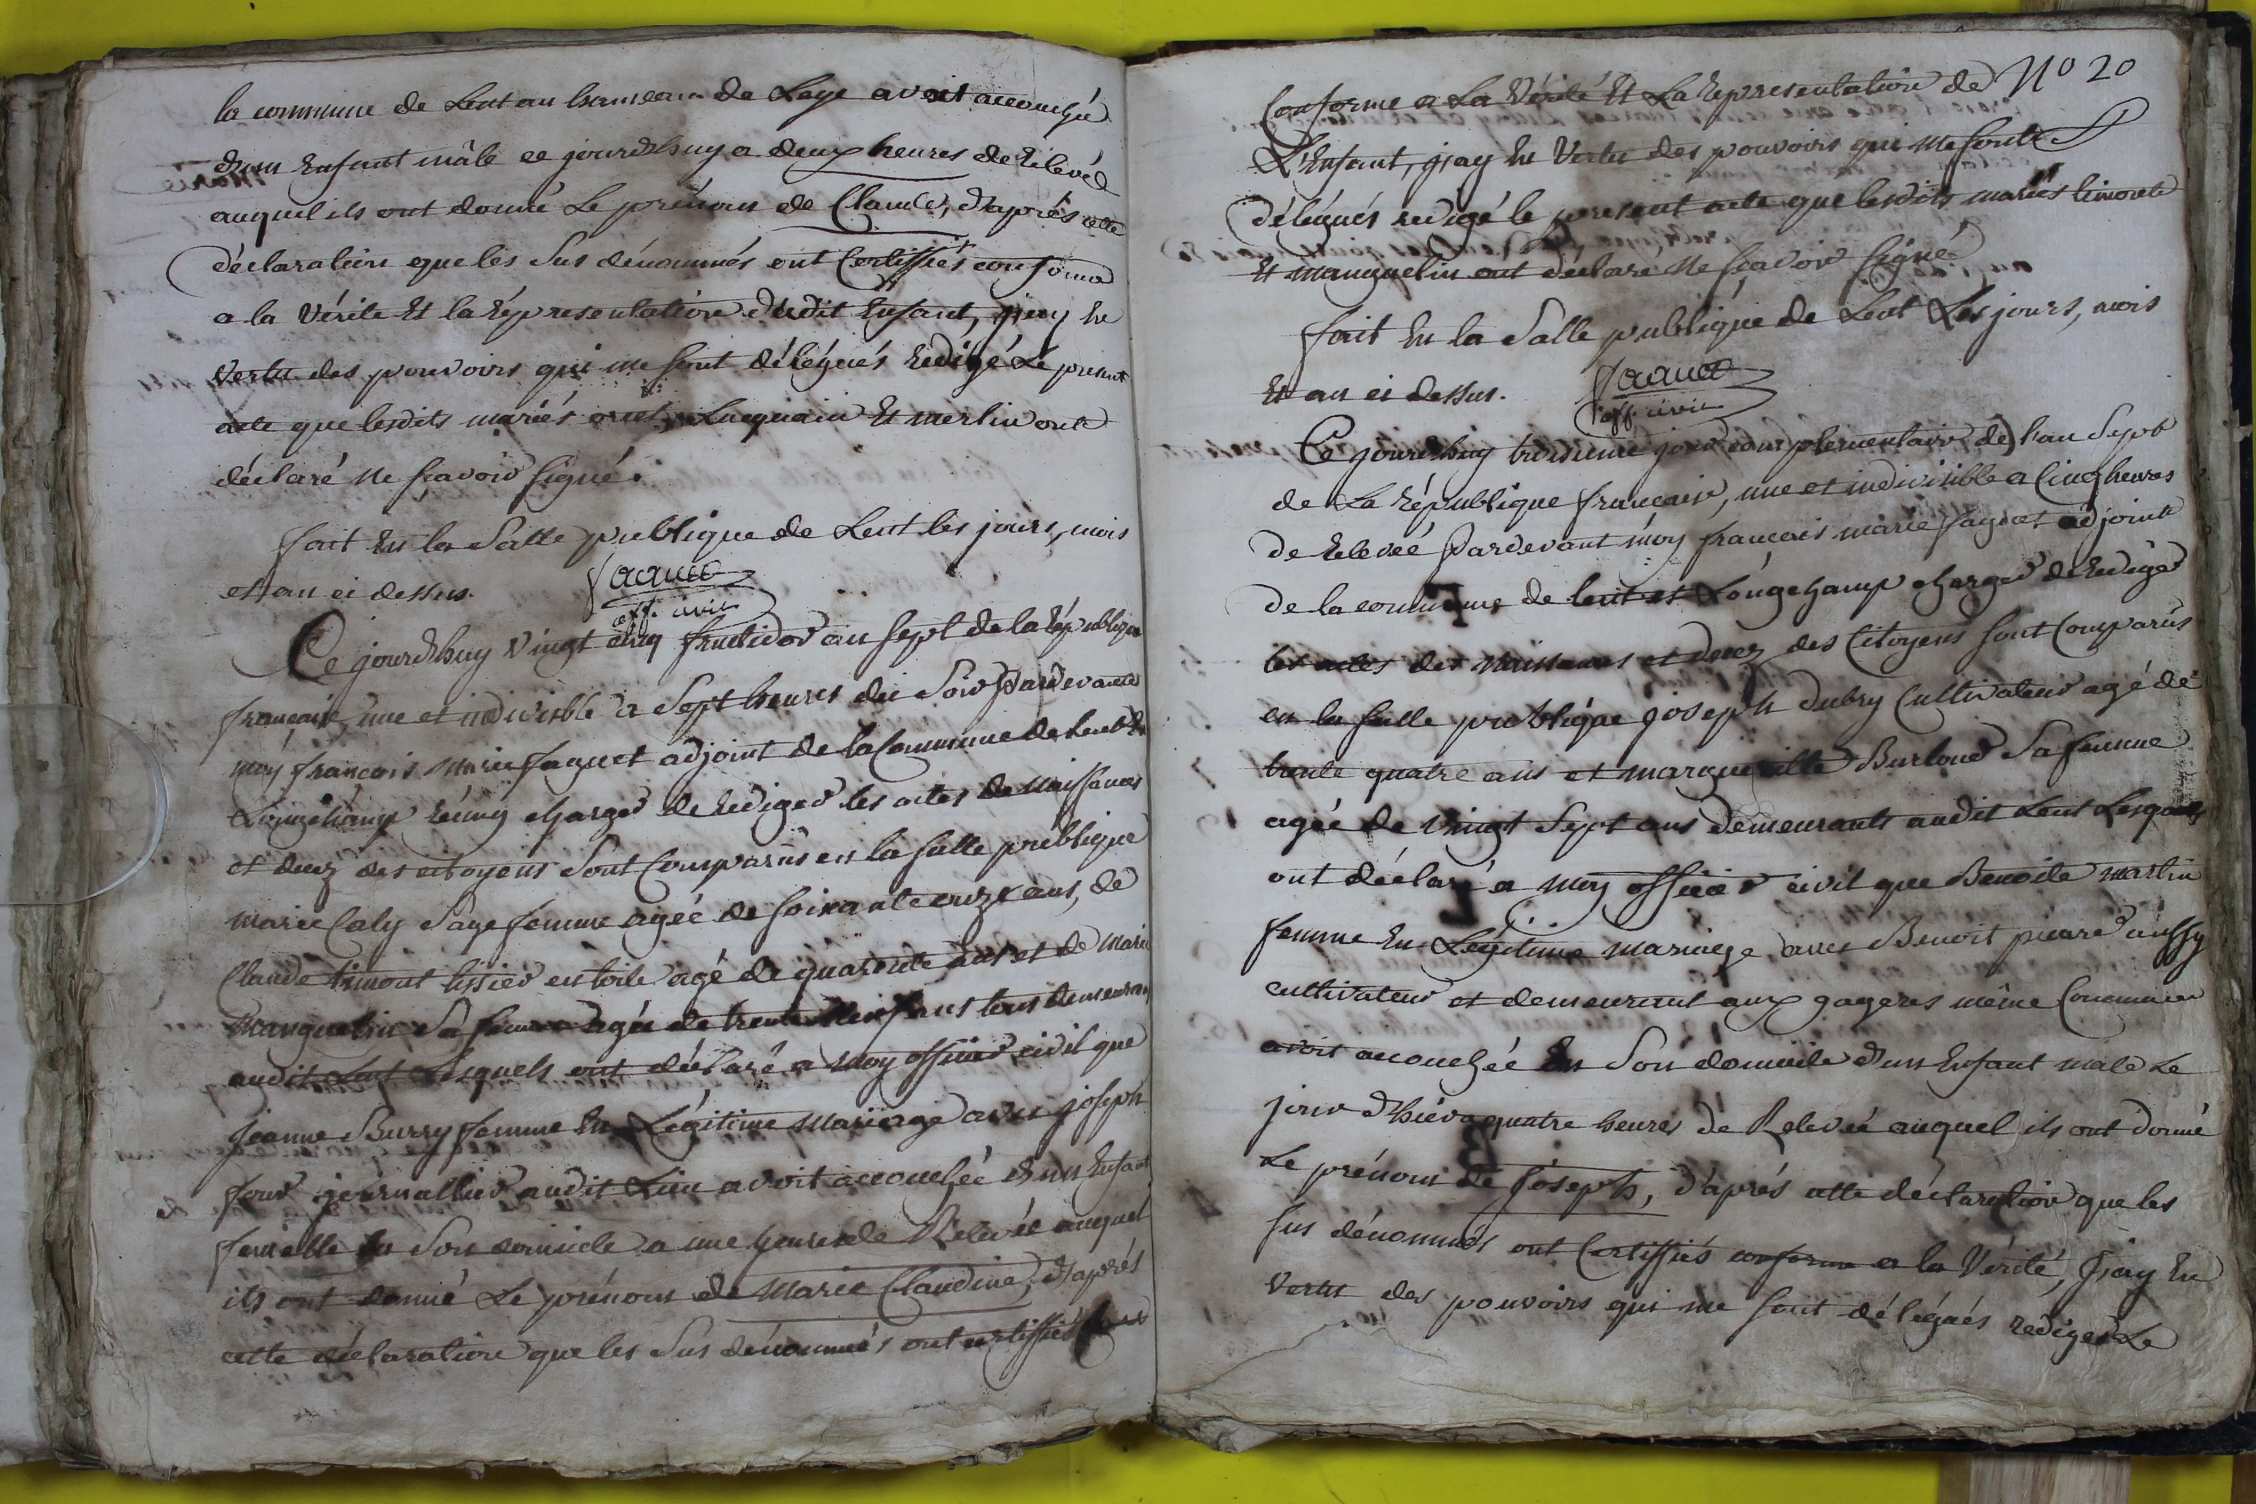 la commune de Lent au hameau de Laye avoit accouché
d'un Enfant mâle ce jourd'huy a deux heures de Relevée
auquel ils ont donné Le prénom de Claude, d'aprés cette
déclaration que les Sus dénommés ont Certiffiés conforme
a la Vérité Et la Représentation dudit Enfant, j'ay En
Vertu des pouvoirs qui me sont délégués Redigé Le present
acte que lesdits mariés Lacquain Et merlin ont
déclaré ne sçavoir signé.
fait En la Salle publique de Lent les jours, mois
et an ci dessus.
faguet
off. civil
Ce jourd'huy Vingt cinq fructidor an Sept de la République
française, une et indivisible a Sept heures du Soir Pardevant
moy françois Marie faguet adjoint de la Commune de Lent Et
Longchamp Réuny chargé de Rediger les actes de Naissances
et decez des citoyens Sont Comparûs en la salle publique
marie Caly Sage femme agée de soixante onze ans, de
Claude timont tissier en toile agé de quarante ans et de Marie
manguelin Sa femme agée de trente ans tous demeurans
audit Lent Lesquels ont déclaré a Moy officier civil que
Jeanne Burry femme En Légitime Mariage avec joseph
four journallier audit Lieu avoit accouchée d'un Enfant
femelle En Son domicile a une heure de Relevée auquel
ils ont donné Le prénom de Marie Claudine, d'aprés
cette déclaration que les Sus dénommés ont certiffiés
N° 20
Conforme a La Vérité Et La Representation de
L'Enfant, j'ay En Vertu des pouvoirs qui me sont
délégués redigé le present acte que lesdits mariés timont
Et manguelin ont déclaré Ne sçavoir signé
fait En la Salle publique de Lent Les jours, mois
Et an ci dessus.
faguet
off. civil
Ce jourd'huy troisieme jour complementaire de l'an Sept
de La République française, une et indivisible a Cinq heures
de Relevée Pardevant moy françois marie faguet adjoint
de la commune de lent et Longchamp chargé de Rediger
les actes des Naissances et decez des Citoyens sont Comparûs
en la salle publique joseph dubry Cultivateur agé de
trente quatre ans et marguerite Burloud Sa femme
agée de Vingt Sept ans demeurants audit Lent Lesquels
ont déclaré a Moy officier civil que Benoite Martin
femme En Légitime mariage avec Benoit picard aussy
cultivateur et demeurant aux gageres même Commune
avoit accouchée En Son domicile d'un Enfant mâle Le
jour d'hier a quatre heures de Relevée auquel ils ont donné
Le prénom de Joseph, d'aprés cette déclaration que les
sus dénommés ont Certiffiés conforme a la Vérité, j'ay En
Vertu des pouvoirs qui me sont délégués redigés Le